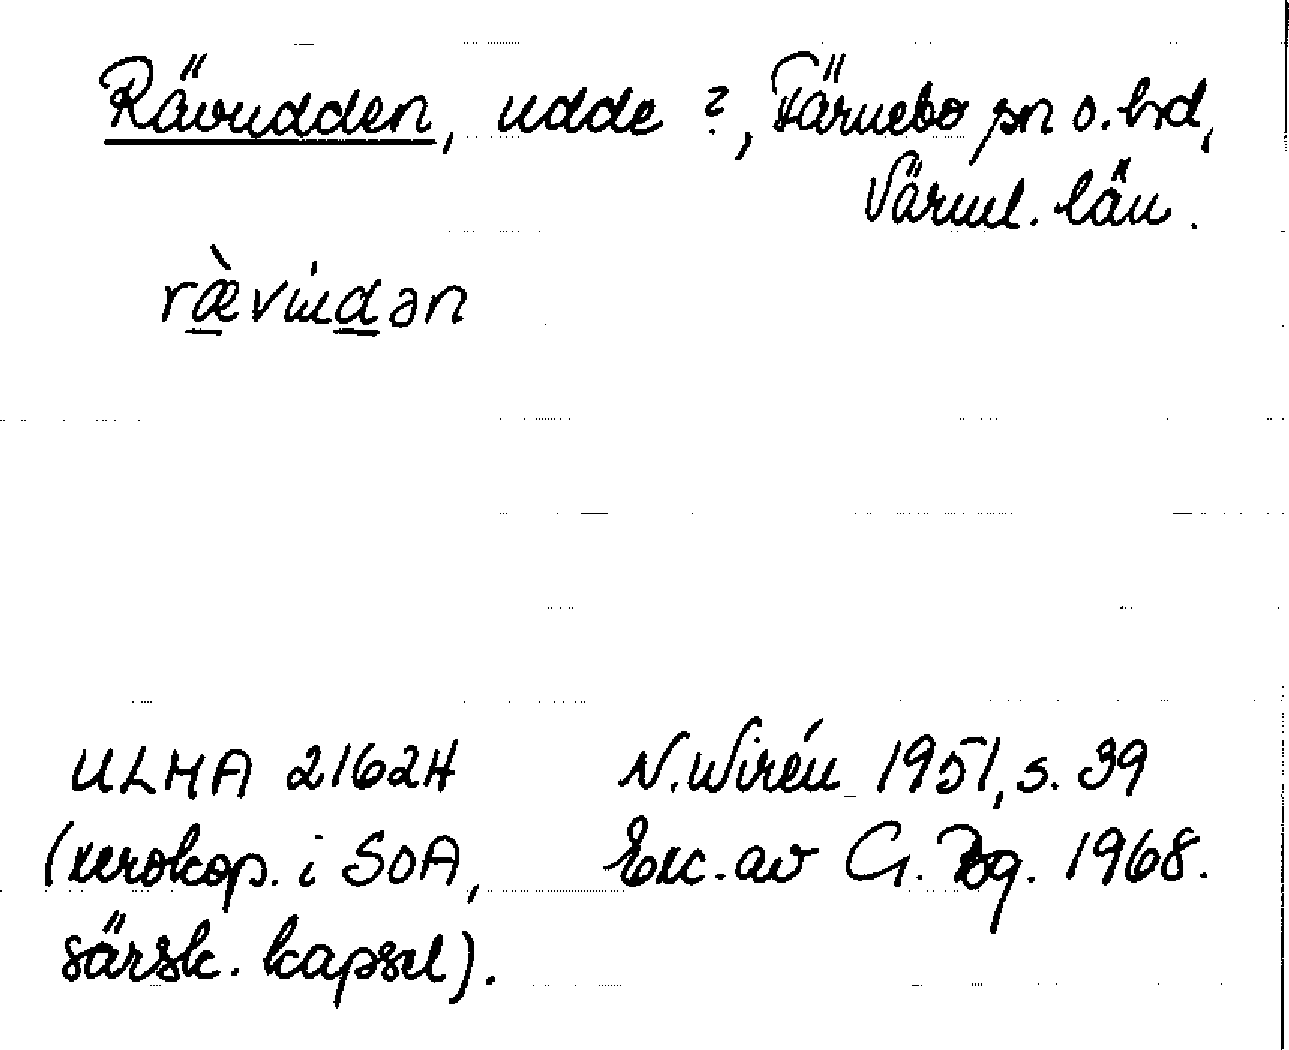 Rävudden, udde ?, Färnebo sn o. hd,
Värml. län.
ræ̀vu̇dən
ULMA 21624
(xerokop. i SOA,
särsk. kapsel).
N. Wirén 1951, s. 39
Exc. av G. Bg. 1968.